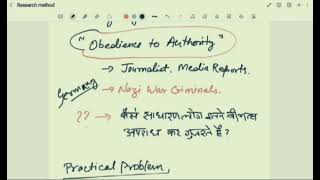 Research method
"Obedience to Authority"
→ Journalist, Media Reports.
Germany → Nazi War Criminals.
?? → कैसे साधारण लोग इतने वीभत्स
अपराध कर गुजरते हैं?
Practical Problem